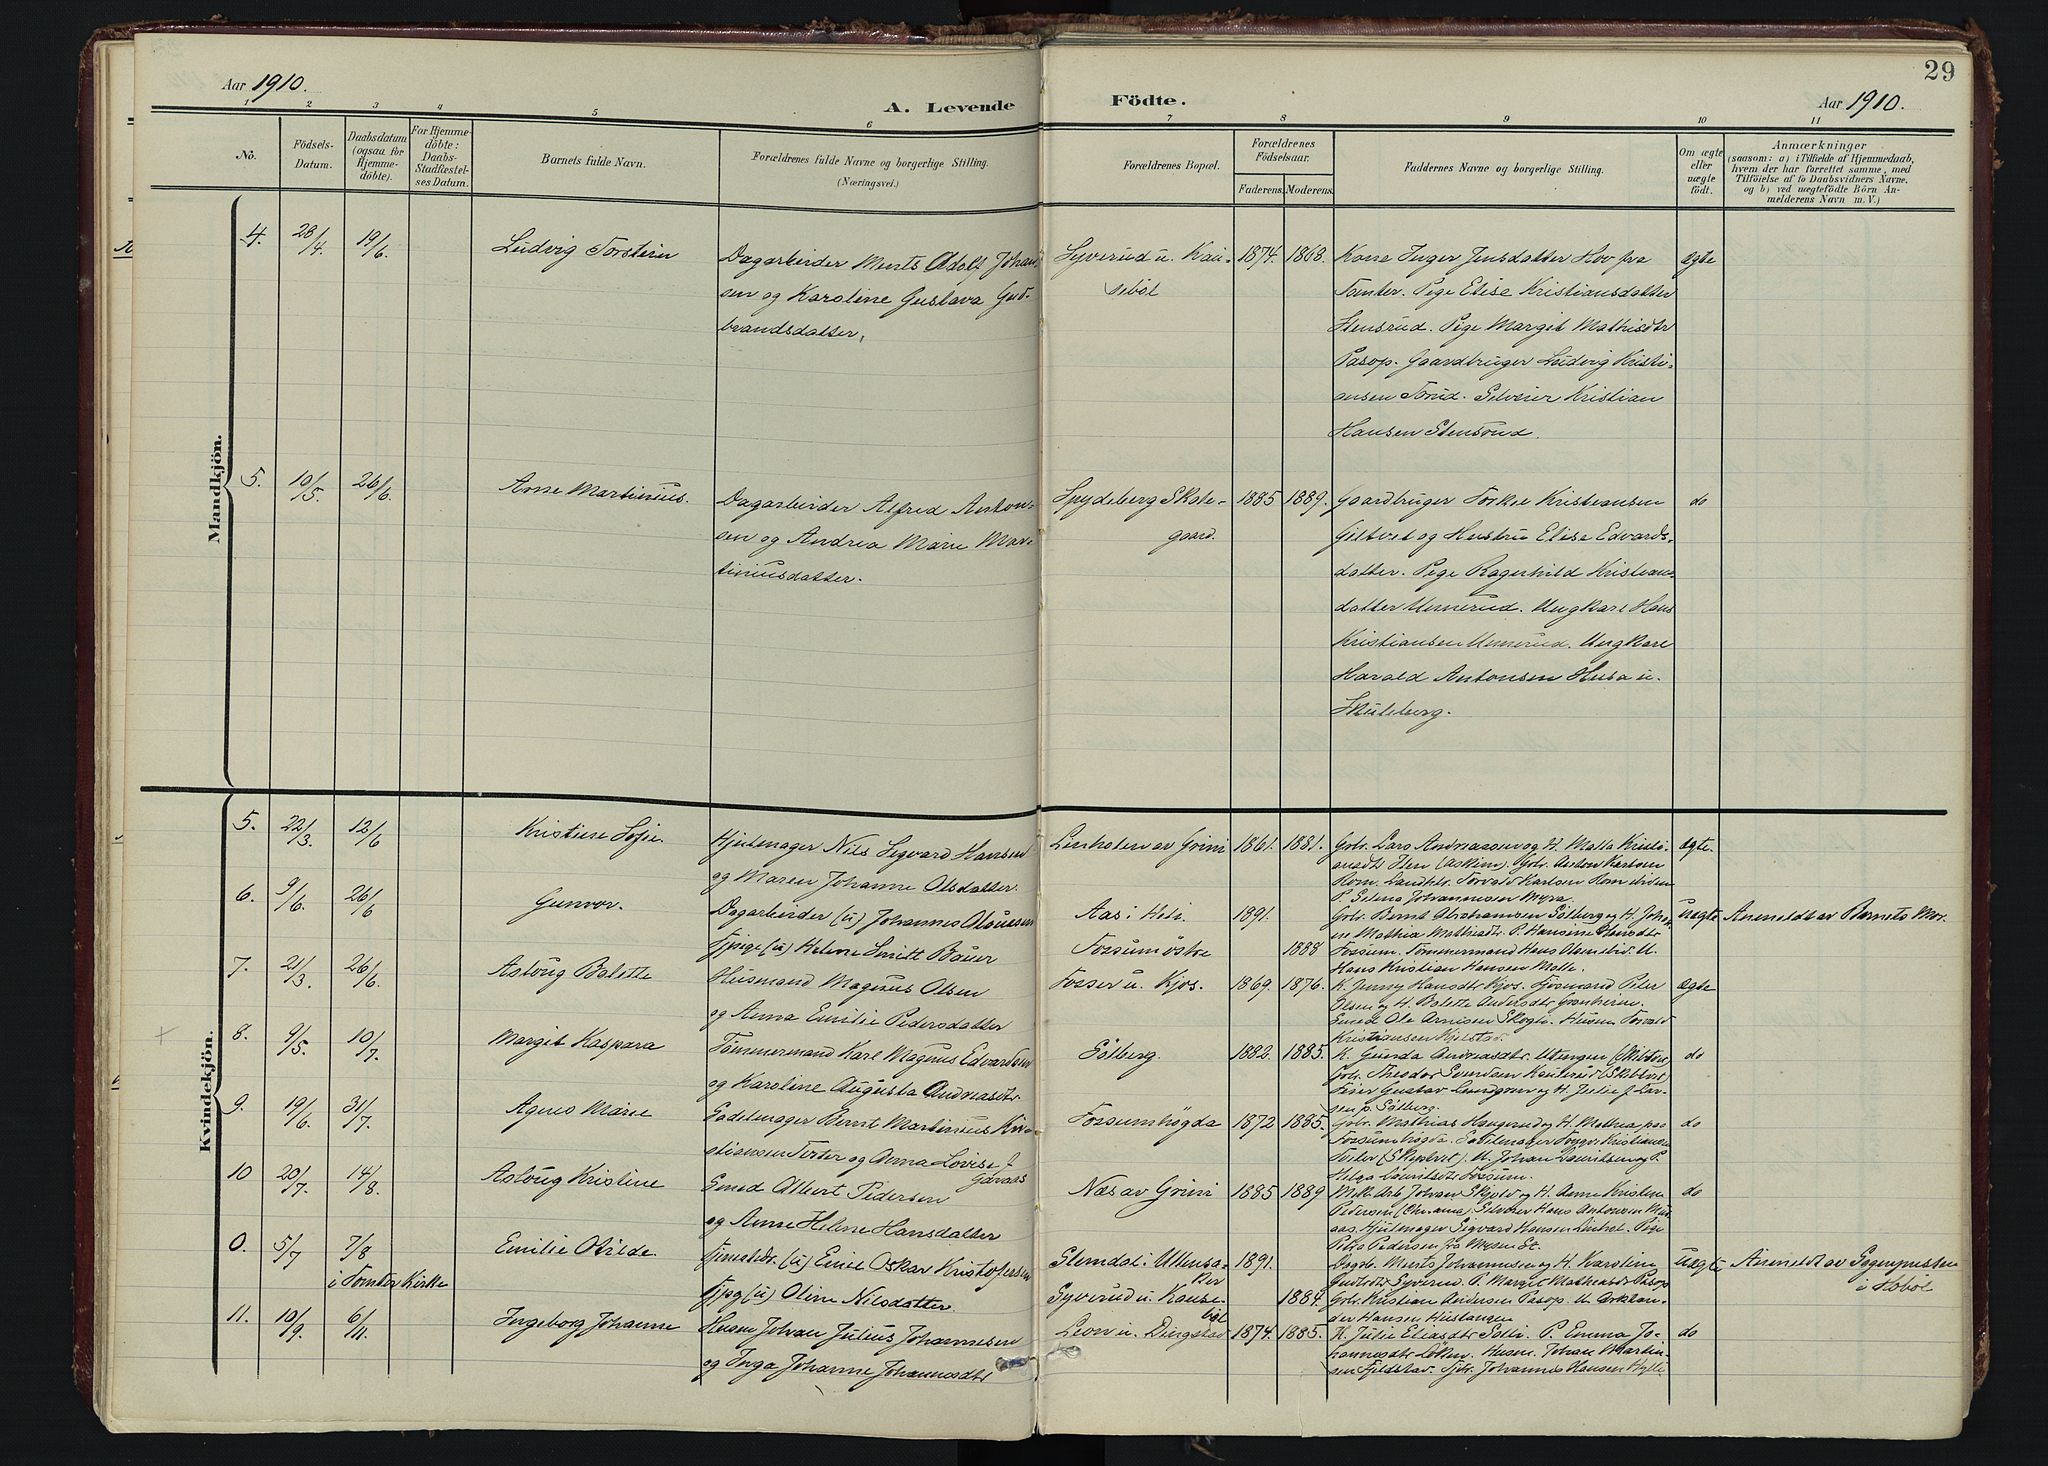 29
Aar 1910.
A. Levende Födte.
Aar 1910.
1 2 3 4 5 6 7 8 9 10 11
No.
Födsels-
Datum.
Daabsdatum
(ogsaa for
Hjemme-
döbte).
For Hjemme-
döbte:
Daabs-
Stadfæstel-
ses Datum.
Barnets fulde Navn.
Forældrenes fulde Navne og borgerlige Stilling.
(Næringsvei.)
Forældrenes Bopæl.
Forældrenes
Födselsaar.
Faderens. Moderens.
Faddernes Navne og borgerlige Stilling.
Om ægte
eller
uægte
födt.
Anmærkninger
(saasom: a) i Tilfælde af Hjemmedaab,
hvem der har forrettet samme, med
Tilföielse af to Daabsvidners Navne.
og b) ved uægtefödte Börn An-
melderens Navn m. V.)
Mandkjön.
4. 28/4 19/6. Ludvig Torstein
Dagarbeider Ments Adolf Johan-
sen og Karoline Gustava Gud-
brandsdatter.
Syverud u. Kau-
sebøl
1874. 1868.
Kone Inger Jensdatter Hov fra
Tomter. Pige Elise Kristiansdatter
Stensrud. Pige Margit Mathisdtr
Pasop. Gaardbruger Ludvig Kristi-
ansen Torud. Kristian
Hansen Stensrud.
ægte
5. 10/5. 26/6. Arne Martinius.
Dagarbeider Alfred Anton-
sen og Andrea Marie Mar-
tiniusdatter.
Spydeberg Skole-
gaard.
1885 1889.
Gaardbruger Kristiansen
og Hustru Elise Edvards-
datter. Pige Ragnhild Kristians-
datter Unnerud. Ungkarl Hans
Kristiansen Unnerud. Ungkarl
Harald Antonsen Husa u.
Skuleberg.
do
Kvindekjön.
5. 22/3. 12/6 Kristine Sofie.
Hjulmager Nils Segvard Hansen
og Maren Johanne Olsdatter.
Lenholen av Grini 1861. 1881.
Gbr. Lars Andreassen og H. Malla Kristi-
ansdtr (Askim). Gbr. Anton Karlsen
Rom. Torvald Karlsen Rom
P. Selma Johannesen Myra.
ægte.
6. 9/6. 26/6 Gunvor.
Dagarbeider (u) Johannes
Tjpige (u) Helene Bauer
Aas i Heli. 1891.
Fossum östre 1888
Gbr. Bernt Abrahamsen Solberg og H. Joha-
ne Mathea Mathisdtr. P. Hansine Hansdtr
Fossum. Tömmermand Hans Olsen ibid. U.
Hans Kristian Hansen Malle.
uægte Anmeldt av Barnets Mor.
7. 21/3. 26/6. Aslaug Balette
Husmand Magnus Olsen
og Anna Emilie Pedersdatter
Fosser u. Kjos. 1869. 1876.
K. Jenny Hansdtr Kjos. Peter
Olsen og H. Balette Andersdtr Granheim.
Smed Ole Arnesen Skogli. Husm. Torvald
Kristiansen
ægte
8. 9/5. 10/7. Margit Kaspara
Tömmermand Karl Magnus Edvardsen
og Karoline Augusta Andreasdtr.
Solberg. 1882. 1885.
K. Gunda Andreasdtr.
Gbr. Theodor Svendsen
Gustav og H. Julie f. Lar-
sen p. Solberg.
do
9. 19/6. 31/7. Agnes Marie
Sadelmager Bernt Martinius Kri-
stiansen Torter og Anna Lovise f
Fossumhögda 1872 1885.
Gbr. Mathias Haugerud og H. Mathea paa
Fossumhögda. Sadelmager Kristiansen
(Skiptvet). U. Johan Lauritsen og P.
Helga Lauritsdtr Fossum.
do
10 20/7. 14/8. Aslaug Kristine
Smed Albert Pedersen
og Anne Helene Hansdatter
Næs av Grini 1885 1889
Johan Skjold og H. Anne Kristine
Pedersen (Chr.ania). Hans Antonsen
Hjulmager Segvard Hansen Linhol. Pige
Petra Pedersen fra Mysen St.
do
0. 5/7 7/8 Emilie Otilde
i Tomter Kirke
Tjenestedr. (u) Emil Oskar Kristofersen
Tjpig (u) Oline Nilsdatter.
Stemdal i Ullensa-
ker 1891.
Syverud u. Kause-
bøl 1884.
Dagb. Ments Johannesen og H. Karoline
Gudbrdtr Syverud. P. Margit Mathisdtr Pasop
Gbr. Kristian Andersen Pasop. U.
der Hansen
uægte Anmeldt av Sogneprsten
i Hobøl
11. 10/9. 6/11. Ingeborg Johanne
Husm Johan Julius Johannesen
og Inga Johanne Johannesdtr
Leon u. Dingstad 1874. 1885.
K. Julie Eliasdtr Solli. P. Emma Jo-
hannesdtr Löken. Husm. Johan Marten-
sen Fjeldstad. Johannes Hansen
do